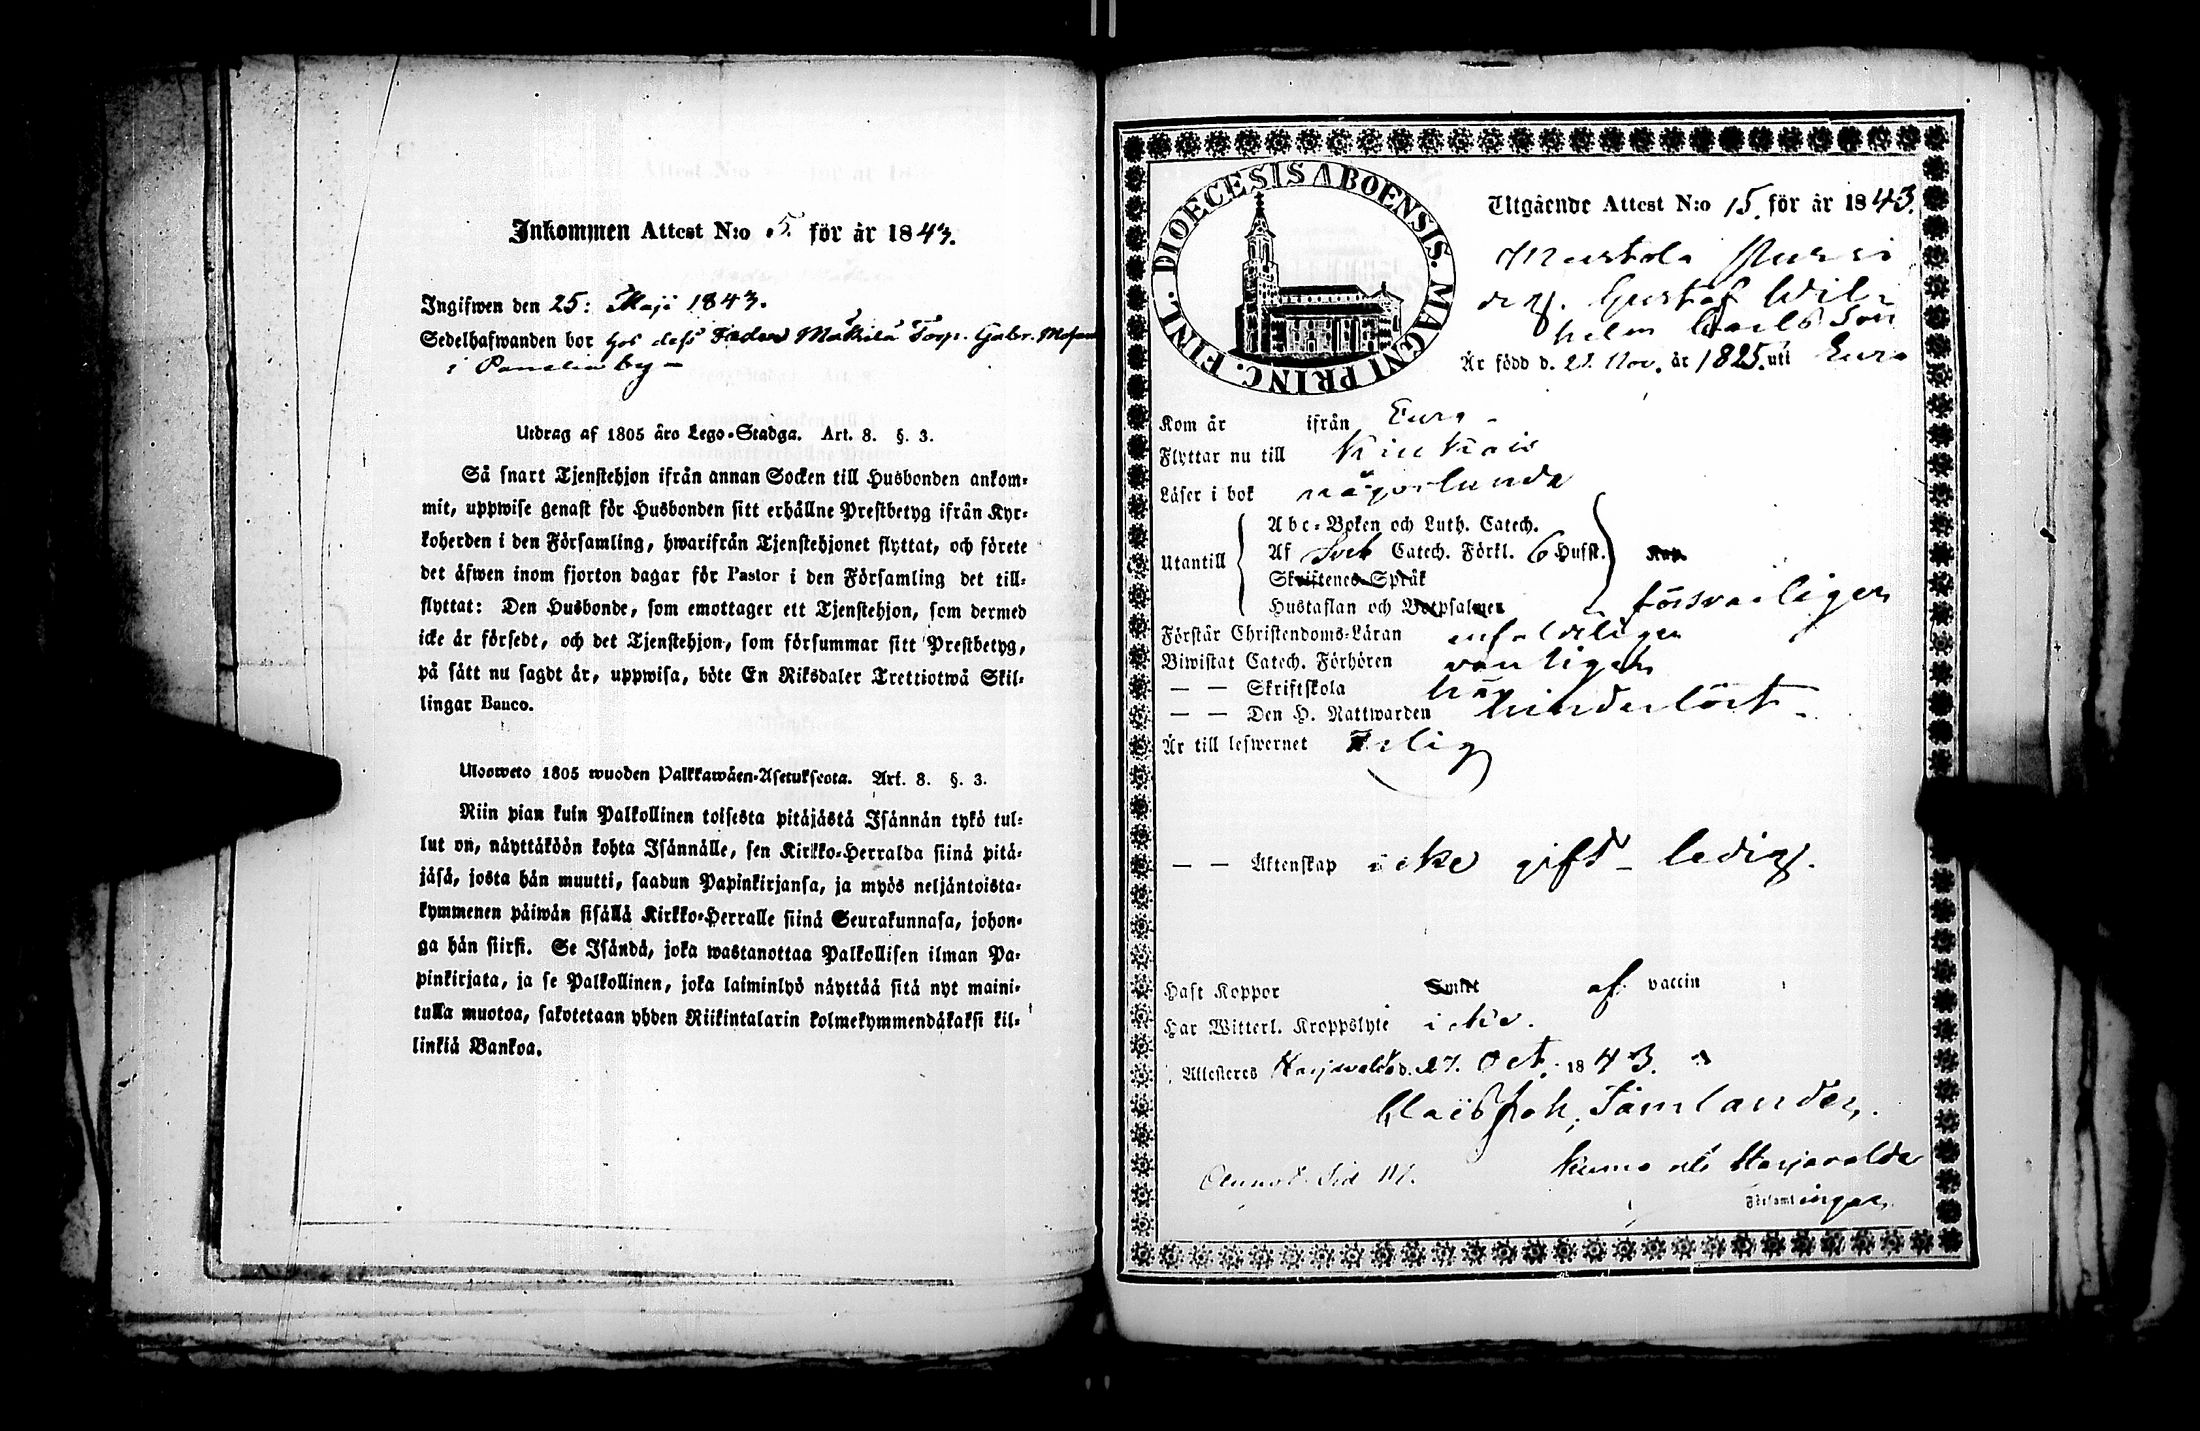 Inkommen Attest N:o 5. för år 1843.
Ingifwen den 25: Maji 1843.
Sedelhafwanden bor hos dess Fader Mäkilä Torp. Gabr.
i Panelia by –
Utdrag af 1805 års Lego-Stadga. Art. 8. §. 3.
Så snart Tjenstehjon ifrån annan Socken till Husbonden ankom-
mit, uppwise genast för Husbonden sitt erhållne Prestbetyg ifrån Kyr-
koherden i den Församling, hwarifrån Tjenstehjonet flyttat, och förete
det äfwen inom fjorton dagar för Pastor i den Församling det till-
flyttat: Den Husbonde, som emottager ett Tjenstehjon, som dermed
icke är försedt, och det Tjenstehjon, som försummar sitt Prestbetyg,
på sätt nu sagdt är, uppwisa, böte En Riksdaler Trettiotwå Skil-
lingar Banco.
Ulosweto 1805 wuoden Palkkawäen-Asetuksesta. Art. 8. §. 3.
Niin pian kuin Palkollinen toisesta pitäjästä Isännän tykö tul-
lut on, näyttäköön kohta Isännälle, sen Kirkko-Herralda siinä pitä-
jäsä, josta hän muutti, saadun Papinkirjansa, ja myös neljäntoista-
kymmenen päiwän sisällä Kirkko-Herralle siinä Seurakunnasa, johon-
ga hän siirsi. Se Isändä, joka wastanottaa Palkollisen ilman Pa-
pinkirjata, ja se Palkollinen, joka laiminlyö näyttää sitä nyt maini-
tulla muotoa, sakotetaan yhden Riikintalarin kolmekymmendäkaksi kil-
linkiä Bankoa.
DIOECESIS ABOENSIS. MAGNI PRINC. FINL.
Utgående Attest N:o 15. för år 1843.
Gustaf Wil-
helm Carlsson
Är född d. 21. Nov. år 1825. uti Eura
Kom år ifrån Eura –
Flyttar nu till Kiukais
Läser i bok någorlunda
Utantill
Abc-Boken och Luth. Catech.
Af Sveb Catech. Förkl. 6 Hufst.
Skriftenes Språk
Hustaflan och Botpsalmer
försvarligen
Förstår Christendoms-Läran enfaldeligen
Biwistat Catech. Förhören vanligen
— — Skriftskola här
— — Den H. Nattwarden hinderlöst –
Är till lefwernet ärlig
— — Äktenskap icke gift – ledig.
Haft Koppor Smitt af vaccin
Har Witterl. Kroppslyte icke.
Attesteres Harjavalta d. 27. Oct. 1843.
Claës Joh. Tamlander.
Kumo och Harjavalda
Församlingar.